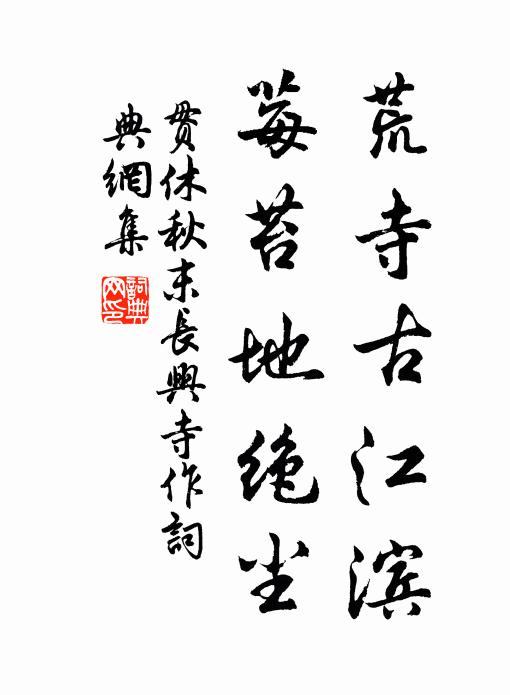 荒寺古江滨
莓苔地绝尘
贯休秋末長興寺作詞
典網集
詞典
网印